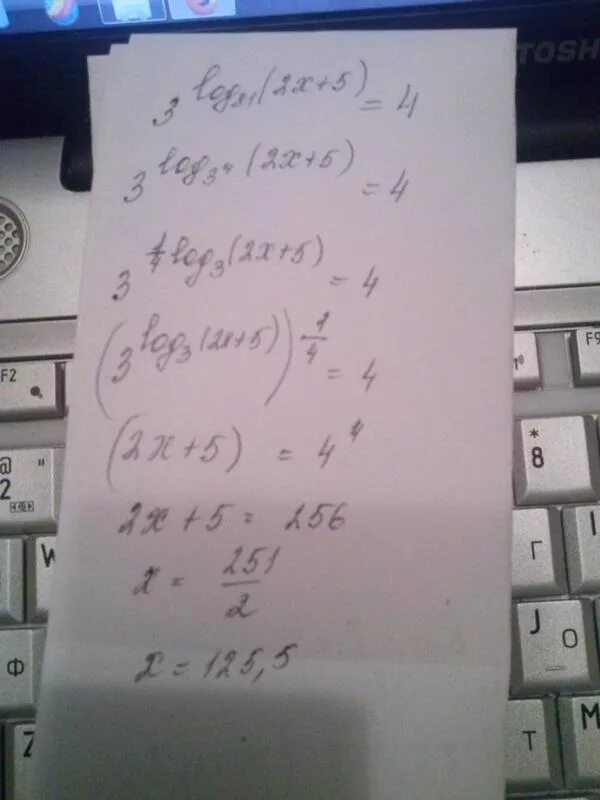 TOSH
3^{log_{81}(2x+5)} = 4
3^{log_{3^4}(2x+5)} = 4
3^{\frac{1}{4}log_3(2x+5)} = 4
(3^{log_3(2x+5)})^{\frac{1}{4}} = 4
(2x+5) = 4^4
2x+5 = 256
x = \frac{251}{2}
x = 125,5
F2
F9
@ "
2
* 8
W
Г
I
Ф
J О
Z
Т
М